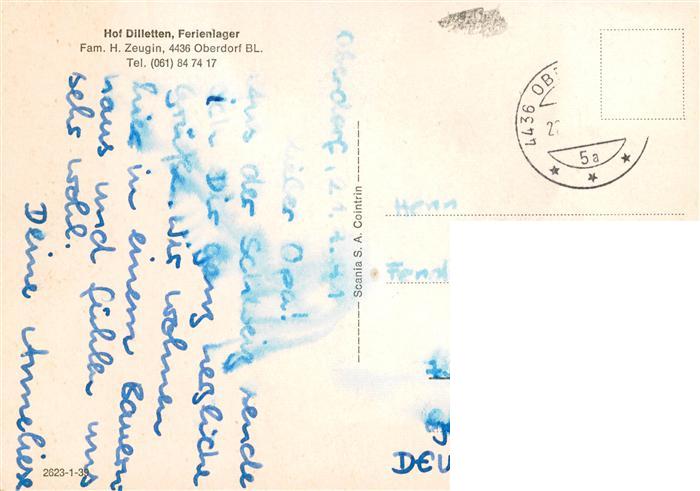 Hof Dilletten, Ferienlager
Fam. H. Zeugin, 4436 Oberdorf BL.
Tel. (061) 84 74 17
Oberdorf, 21.
Lieber Opa!
Aus der Schweiz sende
ich Dir ganz herzliche
Grüße. Wir wohnen
hier in einem Bauern
haus und fühlen uns
sehr wohl.
Deine Anneliese
2623-1-39
Scania S. A. Cointrin
4436 OB
5a
Herrn
DEU